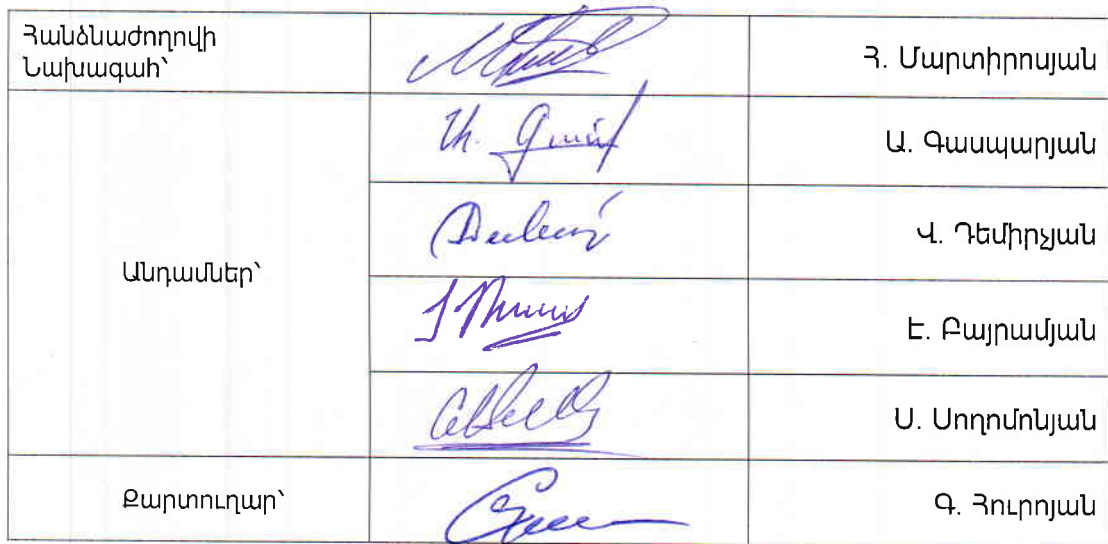 Հանձնաժողովի
Նախագահ՝
Հ. Մարտիրոսյան
Ա. Գասպարյան
Վ. Դեմիրչյան
Անդամներ՝
Է. Բայրամյան
Ս. Սողոմոնյան
Քարտուղար՝
Գ. Հուրոյան